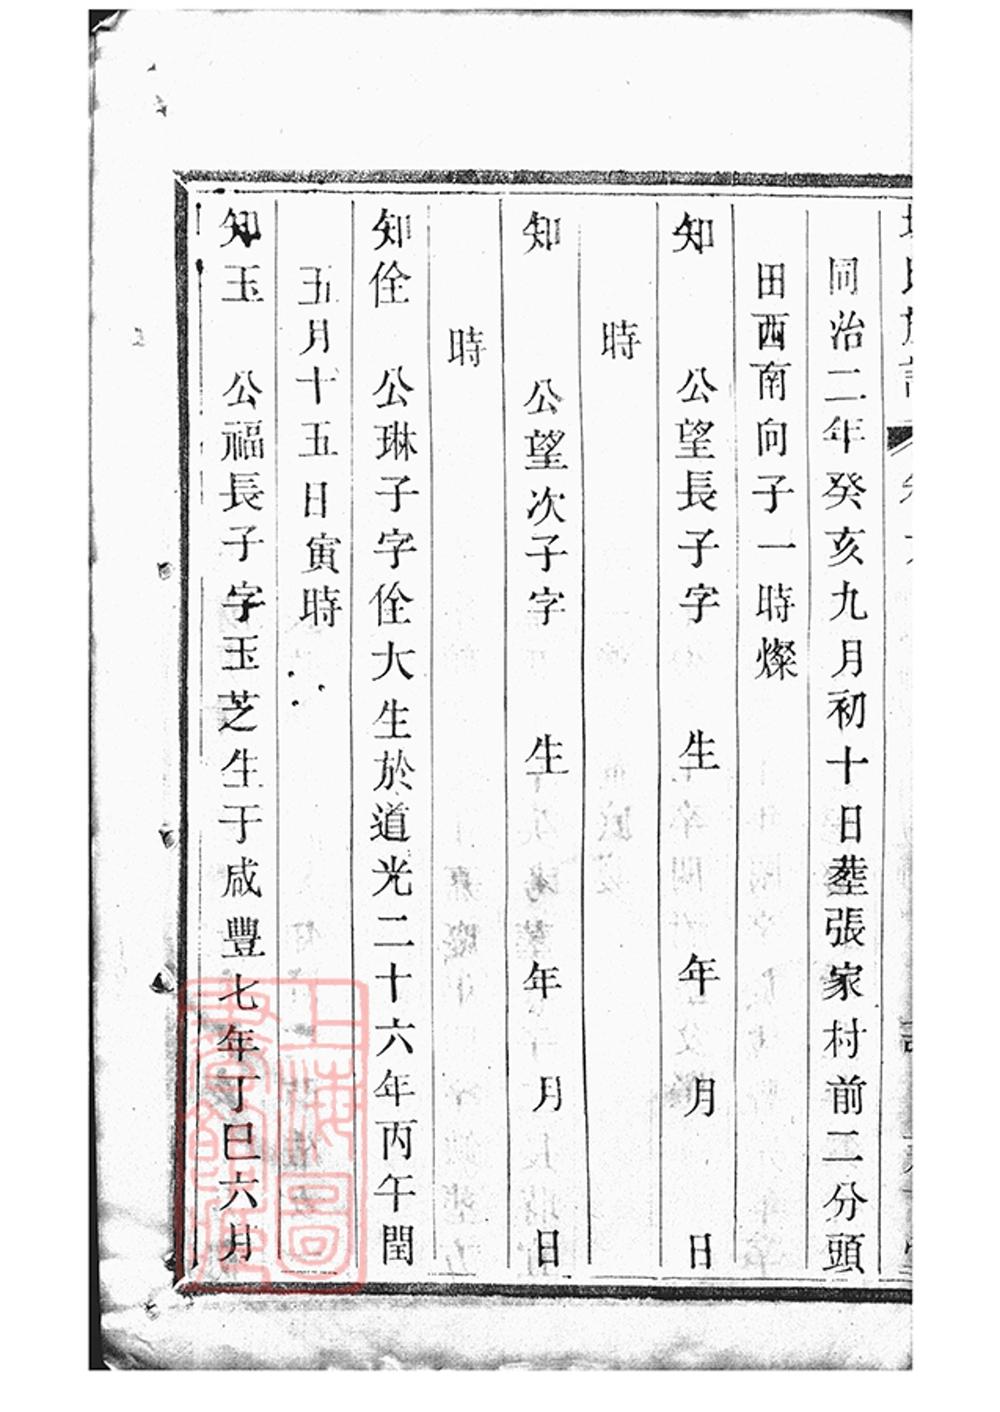 同治二年癸亥九月初十日塟張家村前二分頭
田西南向子一時燦
知 公望長子字 生 年 月 日
時
知 公望次子字 生 年 月 日
時
知佺 公琳子字佺大生於道光二十六年丙午閏
五月十五日寅時
知玉 公福長子字玉芝生于咸豐七年丁巳六月
上海圖書館藏